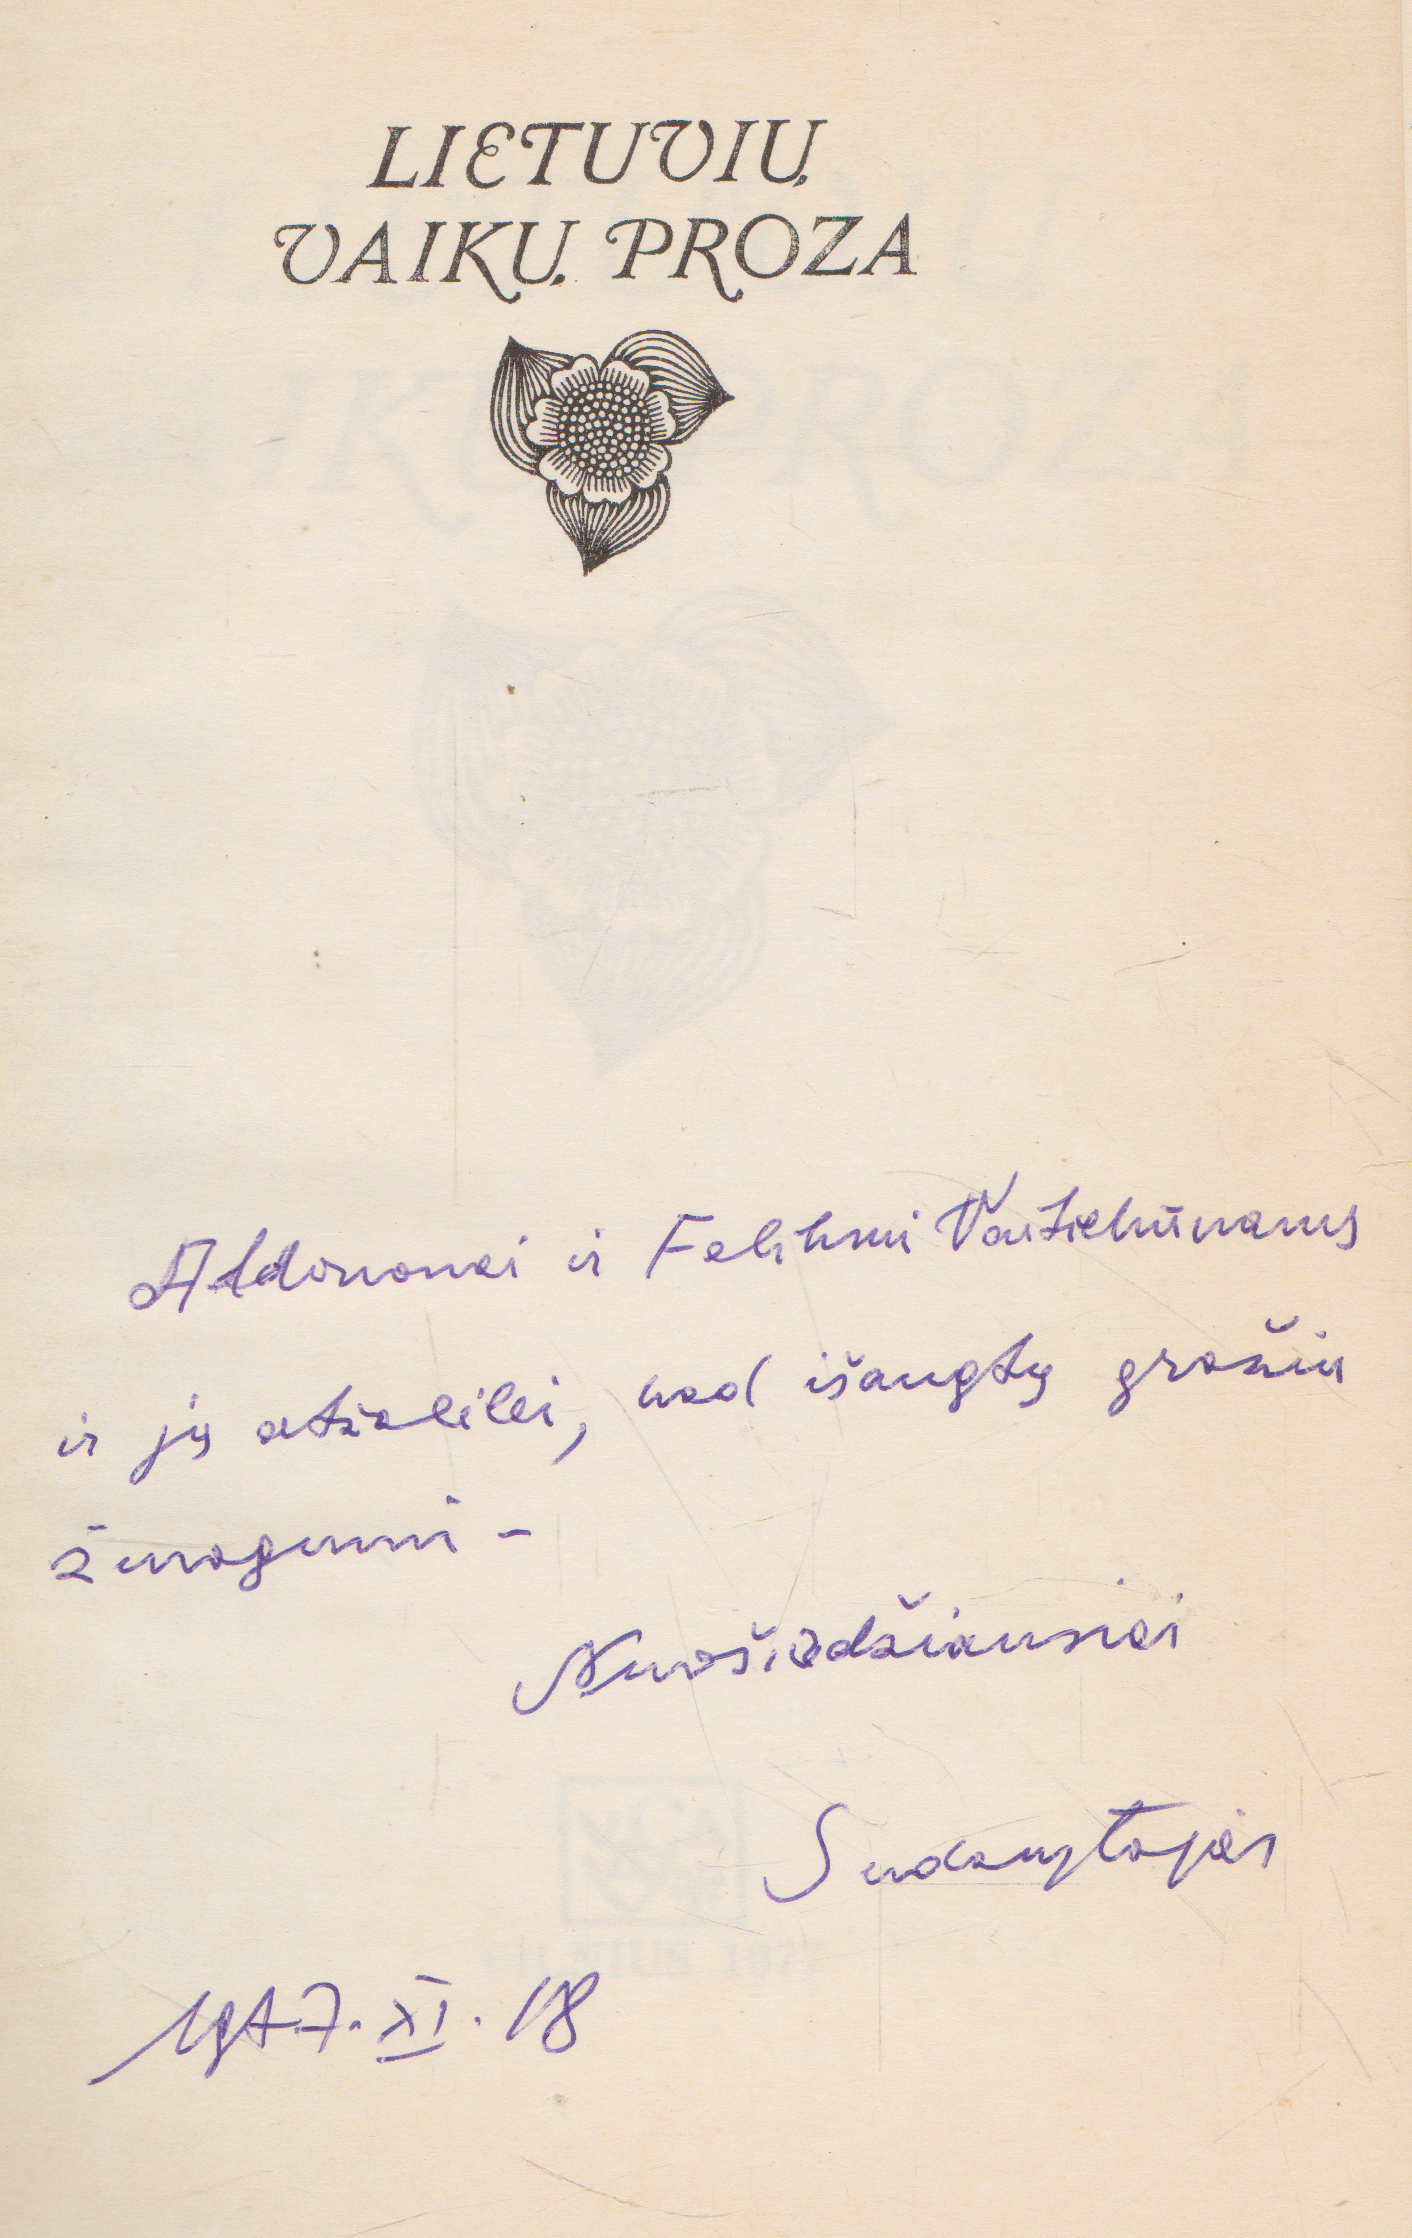 LIETUVIŲ
VAIKŲ PROZA
Aldononai ir Feliksui Vaitiekūnams
ir jų atžalėlei, kad išaugtų gražiu
žmogumi –
Nuoširdžiausiai
Sudarytojas
1977.XI.18
VILNIUS 1977